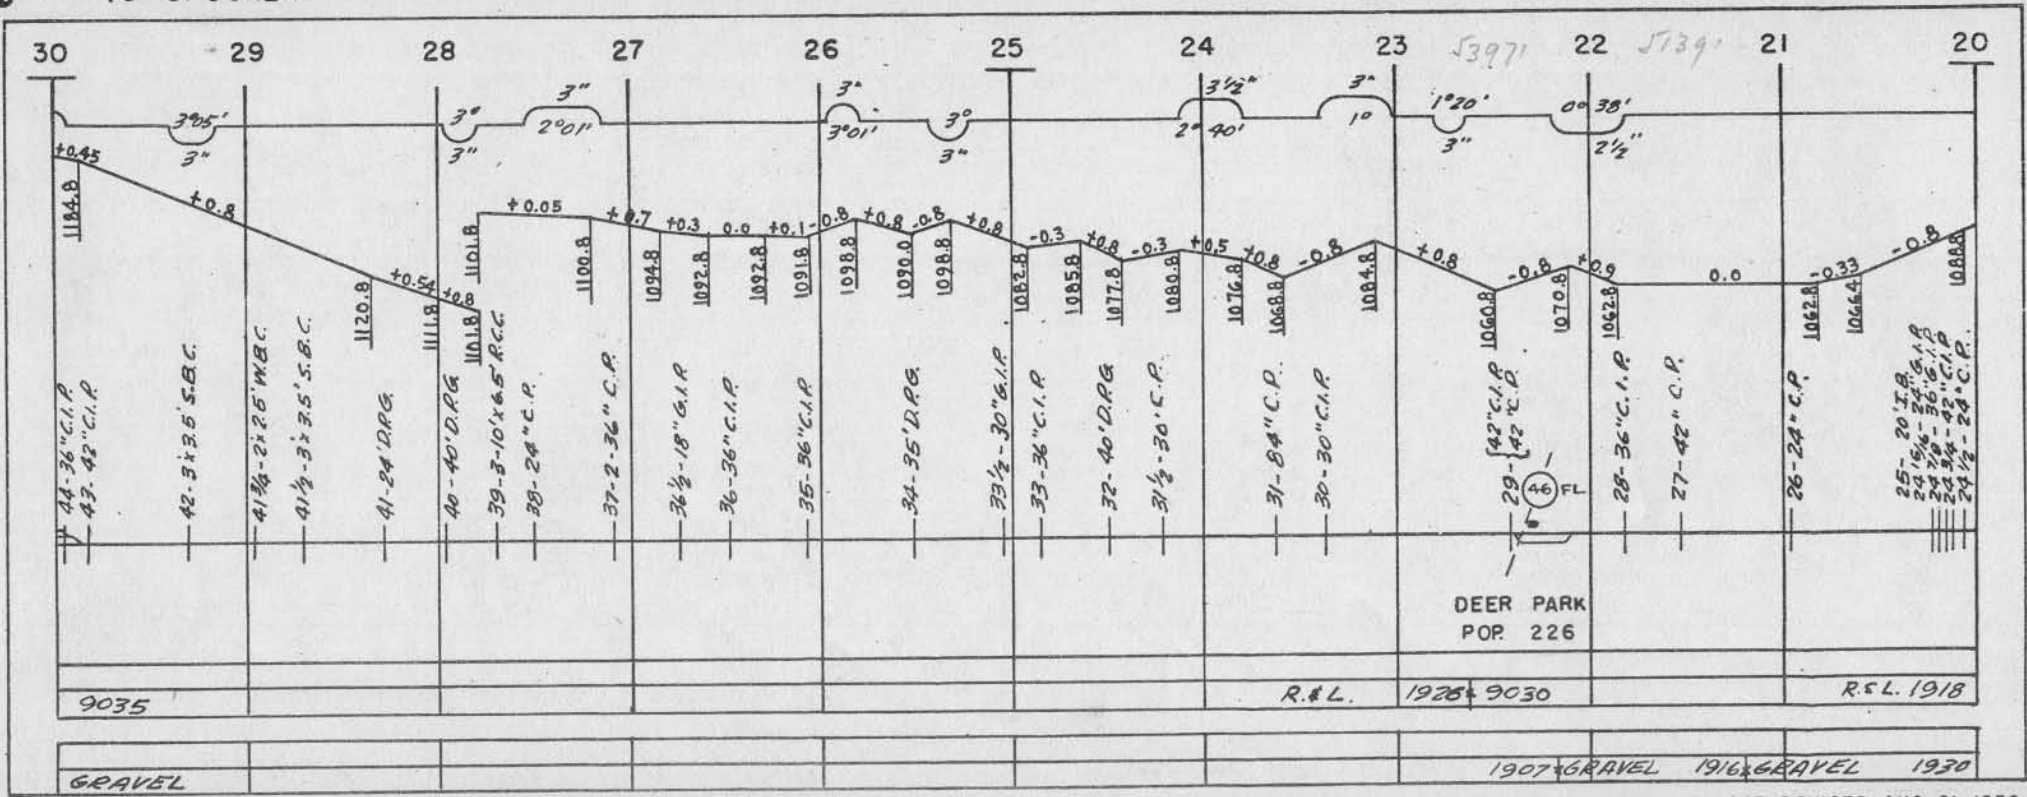 30 29 28 27 26 25 24 23 53971 22 51391 21 20
3°05' 3" 3° 3" 3" 2°01' 3" 3°01' 3° 3" 3½" 2°40' 3" 1° 1°20' 3" 0°38' 2½"
+0.45 +0.8 +0.54 +0.8 +0.05 +0.7 +0.3 0.0 +0.1 -0.8 +0.8 -0.8 +0.8 -0.3 +0.8 -0.3 +0.5 +0.8 -0.8 +0.8 -0.8 +0.9 0.0 -0.33 -0.8
1184.8 1120.8 1111.8 1101.8 1101.8 1100.8 1094.8 1092.8 1092.8 1091.8 1098.8 1090.0 1098.8 1082.8 1085.8 1077.8 1080.8 1076.8 1068.8 1084.8 1060.8 1070.8 1062.8 1062.8 1064.8 1088.8
44-36"C.I.P.
43-42"C.I.P.
42-3'x3.5'S.B.C.
41¾-2'x2.5'W.B.C.
41½-3'x3.5'S.B.C.
41-24'D.P.G.
40-40'D.P.G.
39-3-10'x6.5'R.C.C.
38-24"C.P.
37-2-36"C.P.
36½-18"G.I.P.
36-36"C.I.P.
35-36"C.I.P.
34-35'D.P.G.
33½-30"G.I.P.
33-36"C.I.P.
32-40'D.P.G.
31½-30'C.P.
31-84"C.P.
30-30"C.I.P.
29-{42"C.I.P.
{42"C.P.
46 FL
28-36"C.I.P.
27-42"C.P.
26-24"C.P.
25-20'I.B.
24 15/16-24"G.I.P.
24 7/8-36"G.I.P.
24 3/4-42"C.I.P.
24 1/2-24"C.P.
DEER PARK
POP. 226
9035 R.&L. 1926 9030 R.&L. 1918
GRAVEL 1907 GRAVEL 1916 GRAVEL 1930